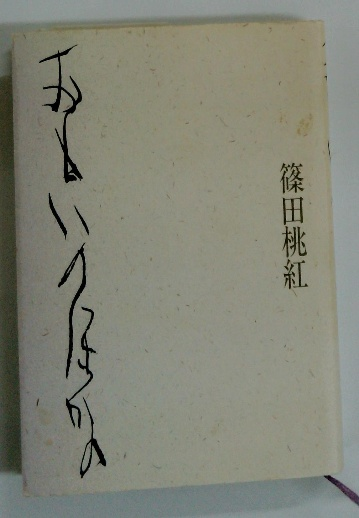 篠田桃紅
おもいのほかの